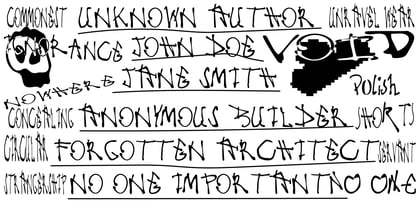 COMMONEST UNKNOWN AUTHOR UNRAVEL WEAR
IGNORANCE JOHN DOE VOID
NOWHERE JANE SMITH Polish
CONCEALING ANONYMOUS BUILDER SHORTS
CIRCULAR FORGOTTEN ARCHITECT SERVANT
STRANGERSHIP NO ONE IMPORTANT NO ONE